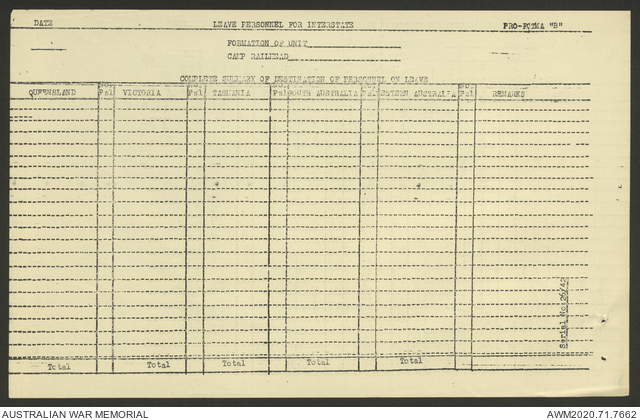 DATE LEAVE PERSONNEL FOR INTERSTATE PRO-FORMA "B"
FORMATION OF UNIT
CAMP RAILHEAD
COMPLETE SUMMARY OF DESTINATION OF PERSONNEL ON LEAVE
QUEENSLAND No. Psl VICTORIA No. Psl TASMANIA No. Psl SOUTH AUSTRALIA No. Psl WESTERN AUSTRALIA No. Psl REMARKS
Total Total Total Total Total
Serial No:26/42
AUSTRALIAN WAR MEMORIAL AWM2020.71.7662